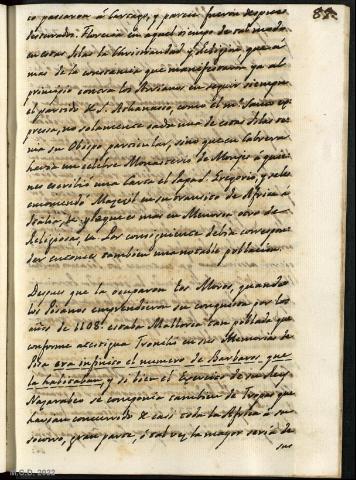 88.
co passaron á Cartago, y parecia fuerza despues
Florecia en aquel tiempo de tal modo
en estas Islas la Christiandad y Religion, que á
mas de la constancia que manifestaron ya al
principio contra los Arrianos en seguir siempre
el partido de S. Athanasio, como el mº Santo ex
presa, no solamente cada una de estas Islas te
nia su Obispo particular, sino que en Cabrera
havia un celebre Monasterio de Monges á quie
nes escribió una Carta el Papa S. Gregorio, y
en su transito de Africa á
Italia, y lo que es mas en Menorca otro de
Religiosas, en los consiguiente debia correspon
der entonces tambien una notable poblacion.
Despues que la ocuparon los Moros, quando
los Pisanos emprendieron su conquista por los
años de 1108. estaba Mallorca tan poblada que
conforme Tronchi en sus Memorias de
Pisa era infinito el numero de Barbaros que
la habitaban, y si bien el Exercito de su Rey
Nazaradeo se componia tambien de tropas que
havian concurrido de casi toda la Africa á su
socorro, gran parte, ó tal vez la mayor seria de
sus
M.C.D. 2022